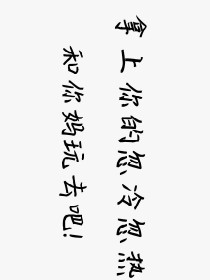 拿上你的忽冷忽热
和你妈玩去吧!